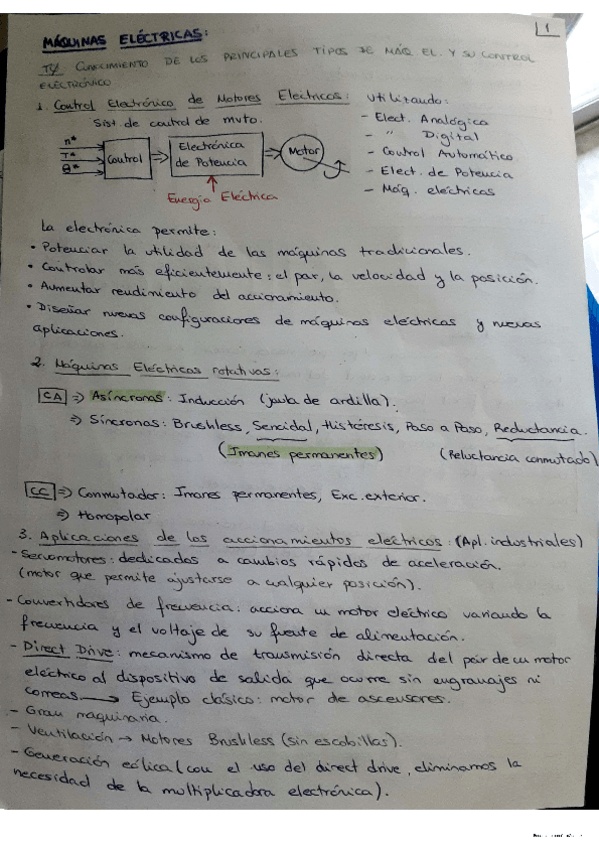 1
MÁQUINAS ELÉCTRICAS:
T1/ CONOCIMIENTO DE LOS PRINCIPALES TIPOS DE MÁQ EL. Y SU CONTROL
ELÉCTRÓNICO
1. Control Electrónico de Motores Electricos: Utilizando:
Sist. de control de mvto.
- Elect. Analógica
- " Digital
- Control Automático.
- Elect. de Potencia
- Máq. eléctricas
n*
T*
θ*
Control
Electrónica
de Potencia
Motor
Energía Eléctrica
La electrónica permite:
• Potenciar la utilidad de las máquinas tradicionales.
• Controlar más eficientemente: el par, la velocidad y la posición.
• Aumentar rendimiento del accionamiento.
• Diseñar nuevas configuraciones de máquinas eléctricas y nuevas
aplicaciones.
2. Máquinas Eléctricas rotativas:
CA => Asíncronas: Inducción (jaula de ardilla).
=> Síncronas: Brushless, Senoidal, Histéresis, Paso a Paso, Reluctancia.
(Imanes permanentes) (Reluctancia conmutado)
CC => Conmutador: Imanes permanentes, Exc. exterior.
=> Homopolar
3. Aplicaciones de los accionamientos eléctricos: (Apl. industriales)
- Servomotores: dedicados a cambios rápidos de aceleración.
(motor que permite ajustarse a cualquier posición).
- Convertidores de frecuencia: acciona un motor eléctrico variando la
frecuencia y el voltaje de su fuente de alimentación.
- Direct Drive: mecanismo de transmisión directa del par de un motor
eléctrico al dispositivo de salida que ocurre sin engranajes ni
correas → Ejemplo clásico: motor de ascensores.
- Gran maquinaria.
- Ventilación → Motores Brushless (sin escobillas).
- Generación eólica (con el uso del direct drive, eliminamos la
necesidad de la multiplicadora electrónica).